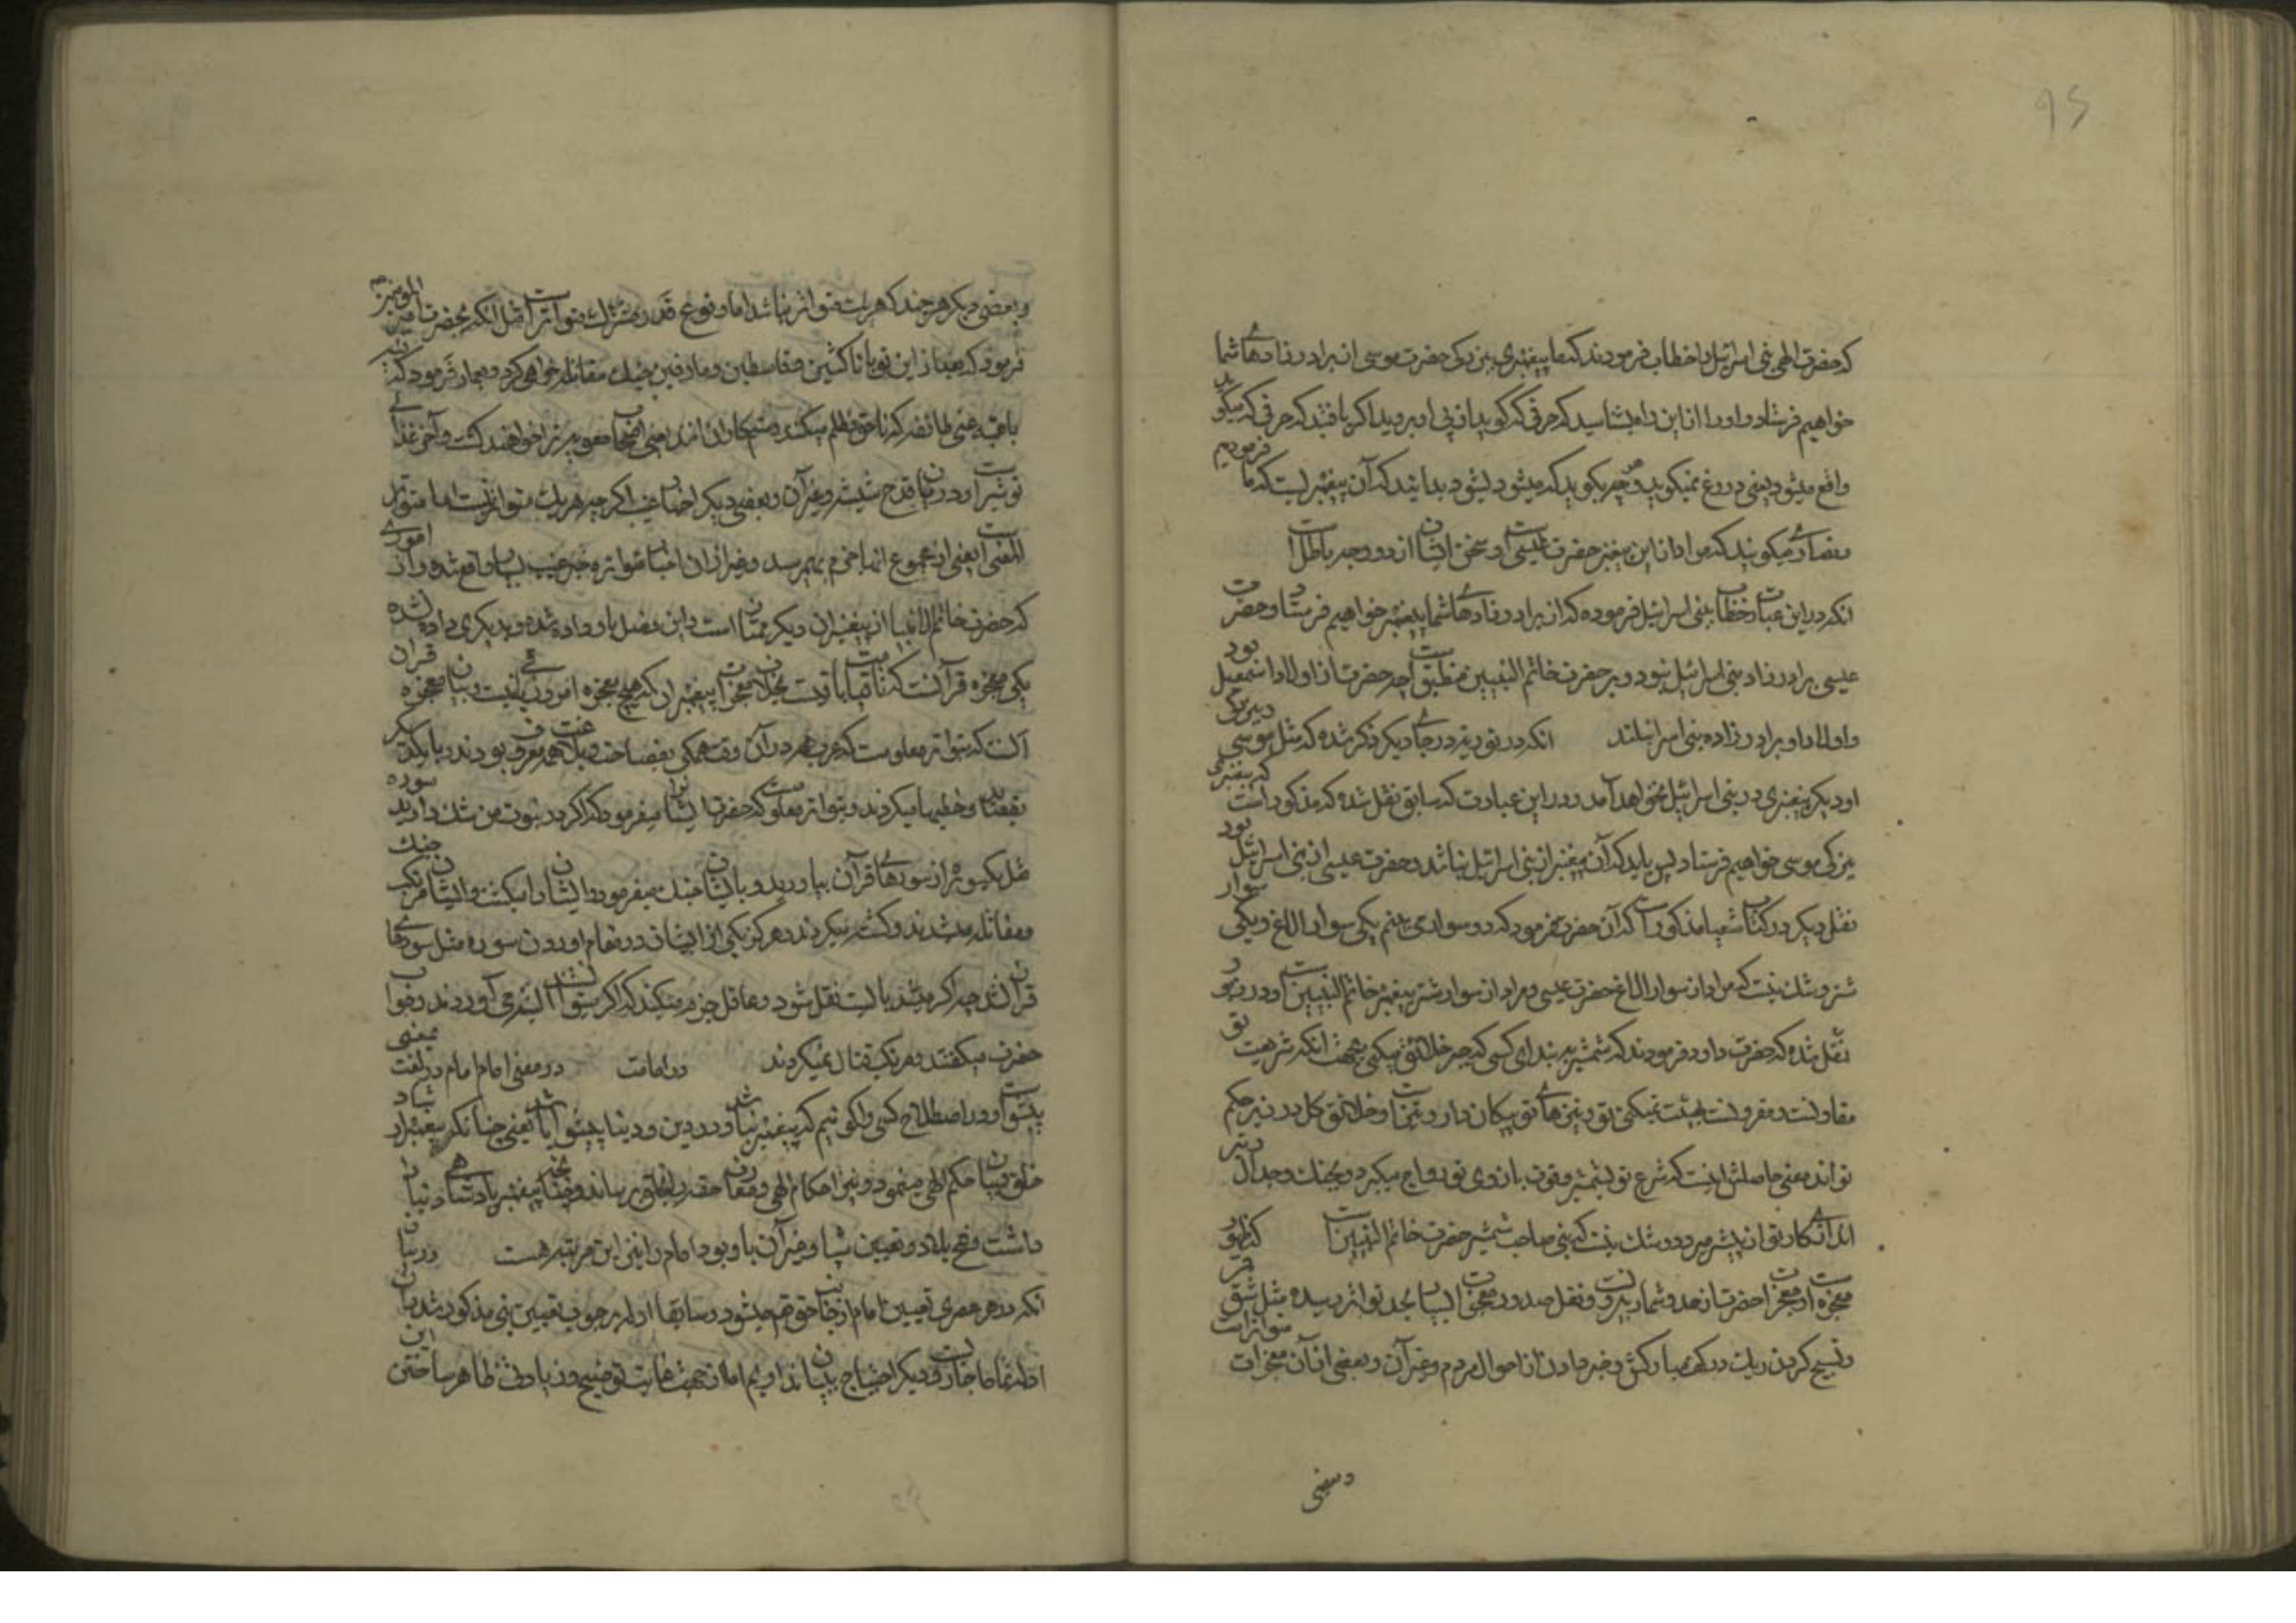 95
که حضرت الهی بنی اسرائیل را خطاب فرمودند که ما پیغمبری ببزرکی حضرت موسی از برادرزادهای شما
خواهیم فرستاد و او را از این راه بشناسید که حرفی که کوید از پی او بروید اکر یافتید که حرفی که میکوید
واقع میشود یعنی دروغ نمیکوید و هر چه بکوید که میشود لیشود بدانید که آن پیغمبریست که ما فرمودیم
و نصاری میکویند که مراد از این پیغمبر حضرت عیسی است و سخن ایشان از دو وجه باطل است
آنکه در این عبارت خطاب ببنی اسرائیل فرموده که از برادرزادهای شما پیغمبر خواهیم فرستاد و حضرت
عیسی برادرزاد بنی اسرائیل نبود و بر حضرت خاتم النبیین منطبق است چه حضرت از اولاد اسمعیل بود
و اولاد او برادرزاده بنی اسرائیلند آنکه در توریة در جای دیکر ذکر شده که مثل موسی ببزرکی
او دیکر پیغمبری در بنی اسرائیل نخواهد آمد و در این عبارت که سابق نقل شده که مذکور است که پیغمبری
ببزرکی موسی خواهیم فرستاد پس باید که آن پیغمبر از بنی اسرائیل نباشد و حضرت عیسی از بنی اسرائیل بود
نقل دیکر در کتاب شعیا مذکور است که آن حضرت فرمود که دو سواری بینم یکی سوار الاغ و یکی سوار
شتر و شک نیست که مراد از سوار الاغ حضرت عیسی و مراد از سوار شتر پیغمبر خاتم النبیین است و در زبور
نقل شده که حضرت داود فرمودند که شمشیر ببند ای کسی که جبر خلائق میکنی بجهت آنکه شریعت تو
مقاولت و مقرونست بهیئت نمیکنی تو و تیرهای تو پیکان دار و تیز است و خلائق کل در زیر حکم
تواند معنی حاصلش اینست که شرع تو بشمشیر و قوت بازوی تو رواج میکیرد و بجنک و جدال و تیر
اندازی کار تو از پیش میرود و شک نیست که نبی صاحب شمشیر حضرت خاتم النبیین است که ظهور
معجزه است و معجزات آحضرت از عد و شمار بیرونست و نقل صدور معجزات ایشان بحد تواتر رسیده مثل شق قمر
و تسبیح کردن ریک در کف مبارکش و خبر دادن از احوال مردم و غیر آن و بعضی از آن معجزات متواتراست
و بعضی
و بعضی دیکر هر چند که هر یک متواتر نباشد اما وقوع قدر مشترک متواتر است مثل آنکه بحضرت امیر المومنین
فرمود که بعد از این تو با ناکثین و قاسطین و مارقین بجنک مقاتله خواهی کرد و بعمار فرمود که فئه
باغیه یعنی طائفه که ناحق و ظلم میکند و ستمکاران اند یعنی اصحاب معویه ترا خواهند کشت و آخر غذای
تو شیر است و در میان قدح شیشه و غیر آن و بعضی دیکر اخبار غیب اکر چه هر یک متواتر نیست اما متواتر
المعنی است یعنی از مجموع آنها جزم بهم رسد و غیر از آن اخبار متواتره خبر غیب بسیار واقع شده و از اموری
که حضرت خاتم الانبیا از پیغمبران دیکر ممتاز است و این فضل باو داده شده و بدیکری داده نشده
یکی معجزه قرآنست که تا قیامت باقیست بخلاف معجزات پیغمبران که هیچ معجزه امروز باقی نیست و بیان معجزه قران
آنست که بتواتر معلومست که عرب هم در آن وقت همکی بفصاحت و بلاغت همه معروف بودند و با یکدیکر
بقصائد و خطبها میکردند و بتواتر معلوم است که حضرت ایشانرا میفرمود که اکر در نبوت من شک دارید سوره
مثل یک سوره از سورهای قرآن بیاورید و با ایشان جنک میفرمود و ایشان را میکشت و ایشان مرتکب جنک
و مقاتله میشدند و کشته میکردند و هرکز یکی از ایشان در مقام اوردن سوره مثل سورهای
قرآن نشد چه اکر میشد بایست نقل شود و عاقل جزم میکند که اکر میتوانستند البته می آوردند و جواب
حضرت میکفتند و مرتکب قتال نمیکردند در امامت در معنی امام امام در لغت بمعنی
پیشواست و در اصطلاح کسی را کوئیم که پیغمبر نباشد و در دین و دنیا پیشوا باشد یعنی چنانکه پیغمبر ارشاد
خلق و بیان حکم الهی مینمود و نیز احکام الهی و معارف حقه را بخلق برساند و چنانچه پیغمبر پادشاهی دنیا را
داشت و فتح بلاد و تعیین سپاه و غیر آن با او بود امام را نیز این مرتبه هست در بیان
آنکه در هر عصری تعیین امام از جناب حق تعم میشود و سابقا ادله بر وجوب تعیین نبی مذکور شد بآن
ادله تماما جاریست و دیکر احتیاج ببیان نداریم اما از جهت غایت توضیح و زیادتی ظاهر ساختن این